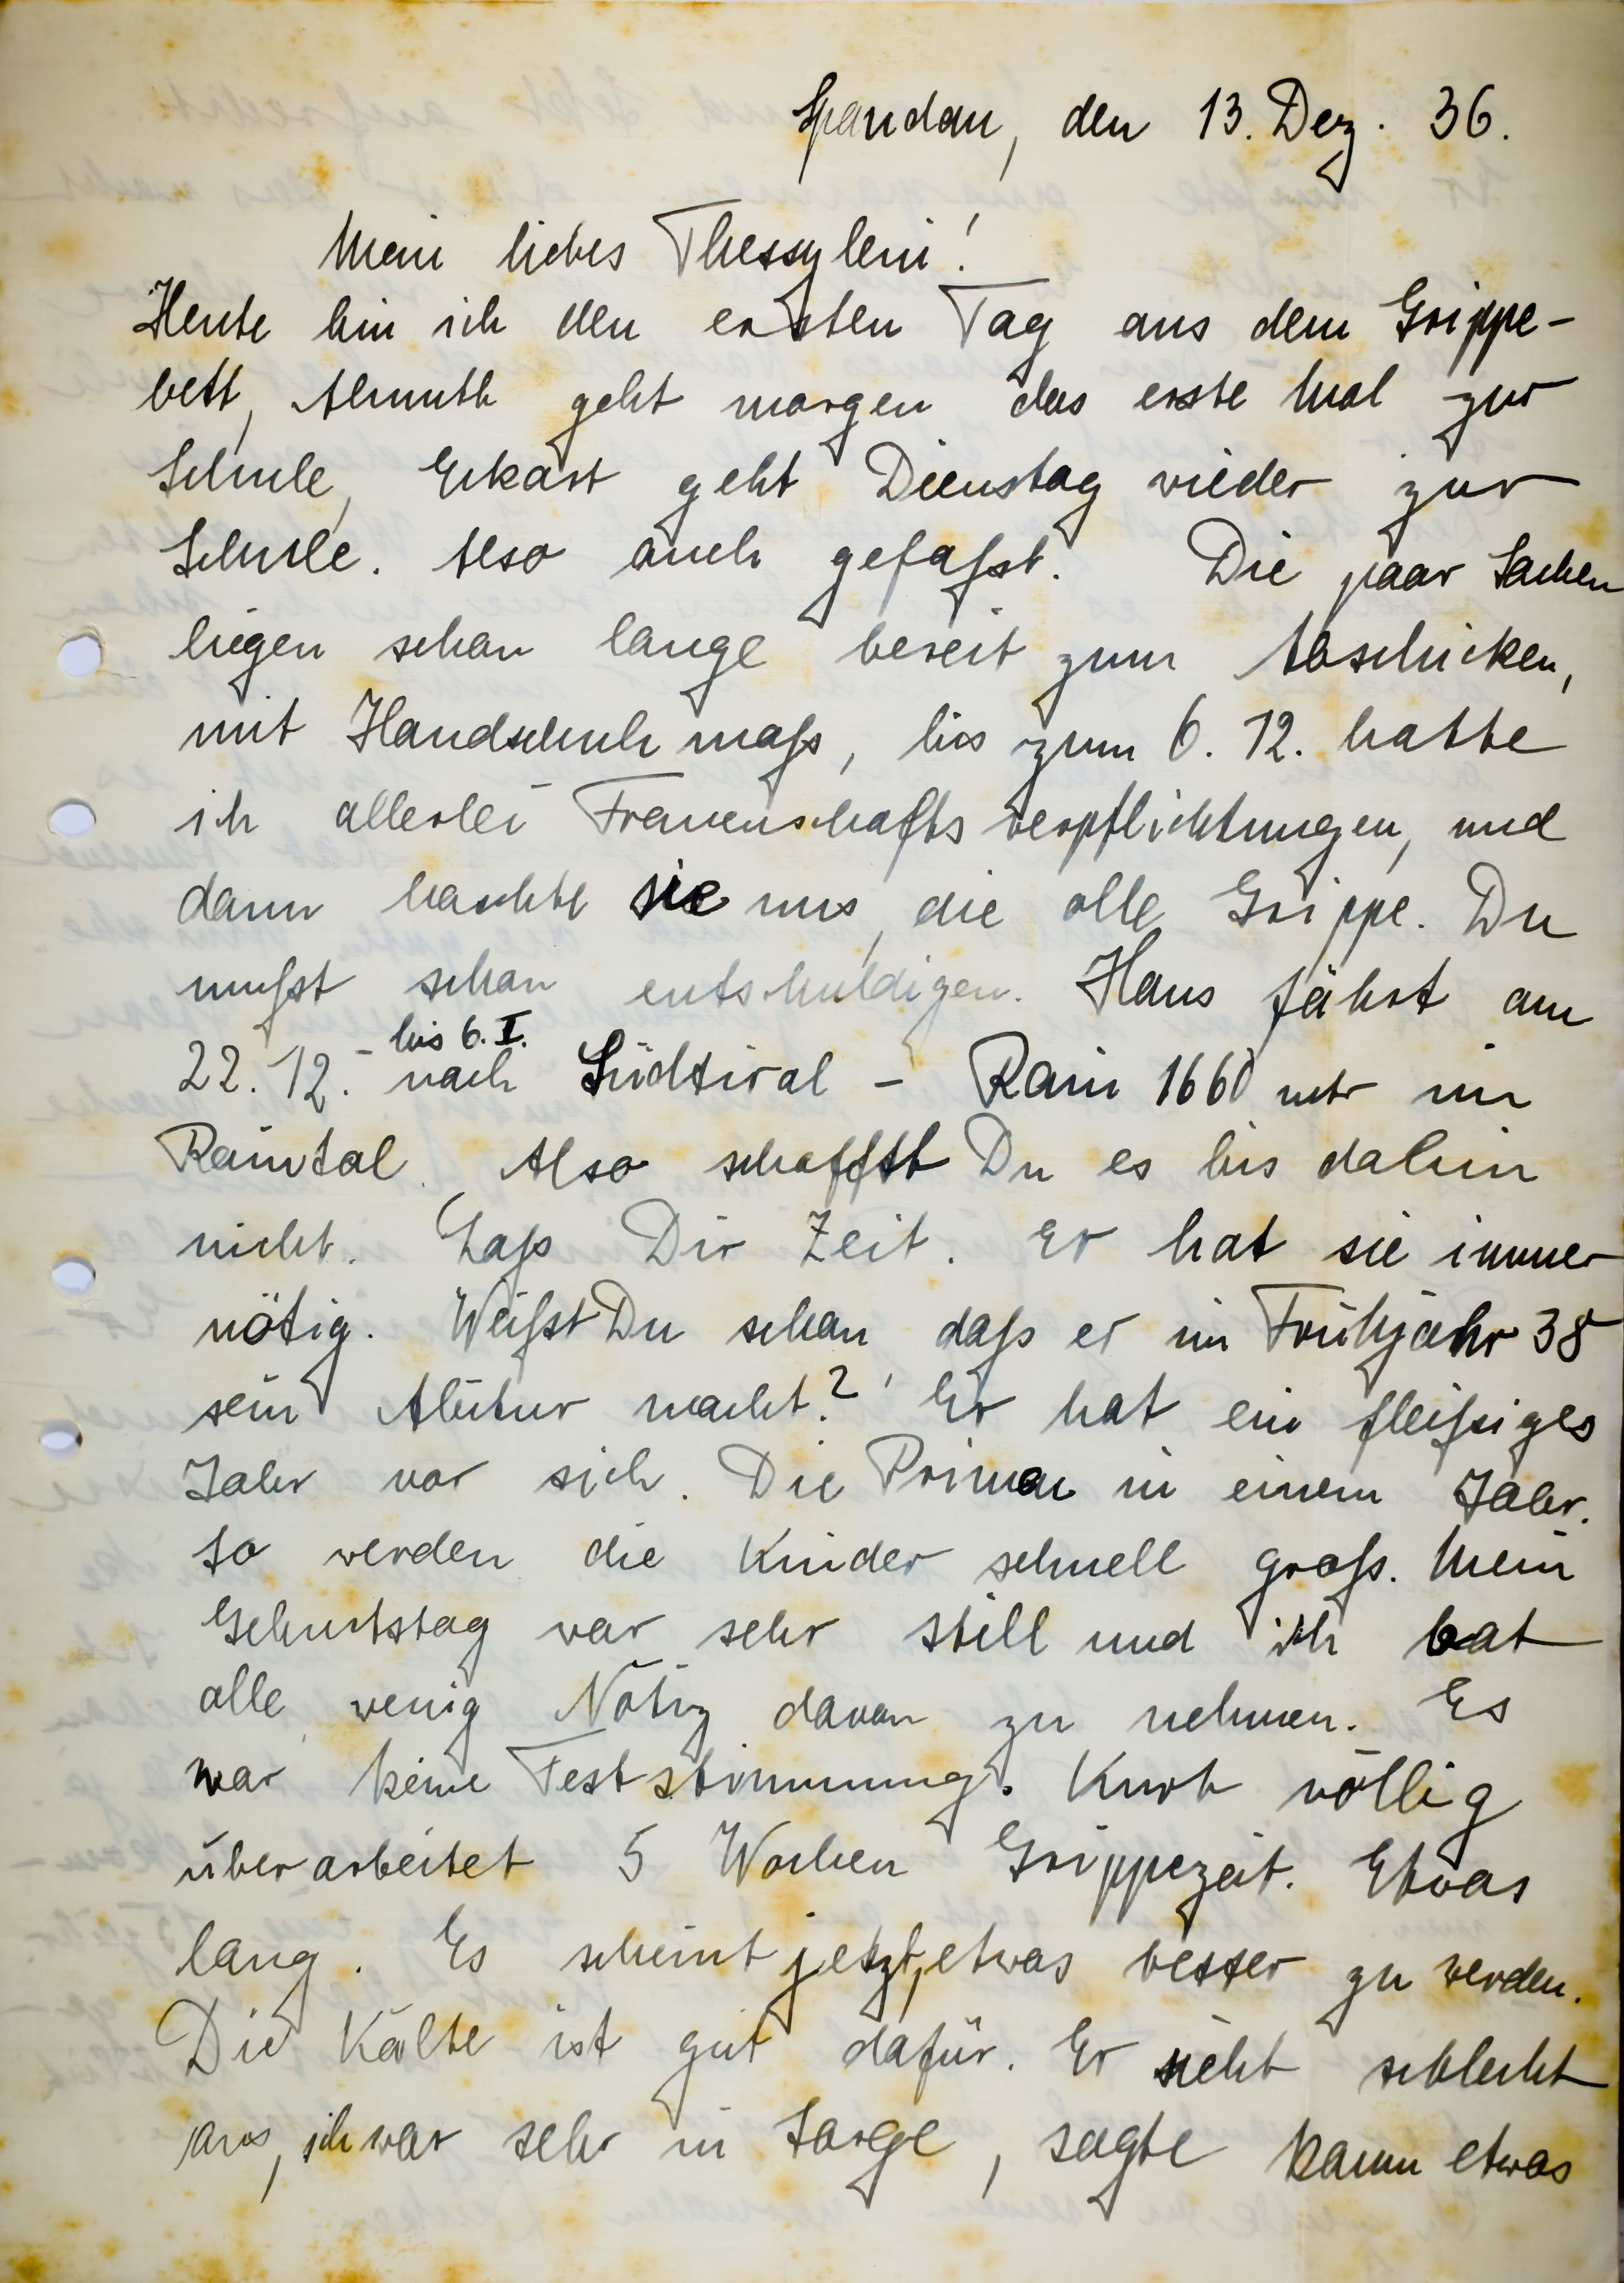 Spandau, den 13. Dez. 36.
Mein liebes Thessylein!
Heute bin ich den ersten Tag aus dem Grippe-
bett, Almuth geht morgen das erste Mal zur
Schule, Eckart geht Dienstag wieder zur
Schule. Also auch gefaßt. Die paar Sachen
liegen schon lange bereit zum Abschicken,
mit Handschuhmaß, bis zum 6. 12. hatte
ich allerlei Frauenschaftsverpflichtungen, und
dann haschte sie uns, die olle Grippe. Du
mußt schon entschuldigen. Hans fährt am
22. 12. - bis 6. I. nach Südtirol - Rain 1660 mtr im
Raintal. Also schaffst Du es bis dahin
nicht. Laß Dir Zeit. Er hat sie immer
nötig. Weißt Du schon daß er im Frühjahr 38
sein Abitur macht? Er hat ein fleißiges
Jahr vor sich. Die Prima in einem Jahr.
So werden die Kinder schnell groß. Mein
Geburtstag war sehr still und ich bat
alle wenig Notiz davon zu nehmen. Es
war keine Feststimmung. Kurt völlig
überarbeitet 5 Wochen Grippezeit. Etwas
lang. Es scheint jetzt, etwas besser zu werden.
Die Kälte ist gut dafür. Er sieht schlecht
aus, ich war sehr in Sorge, sagte kaum etwas